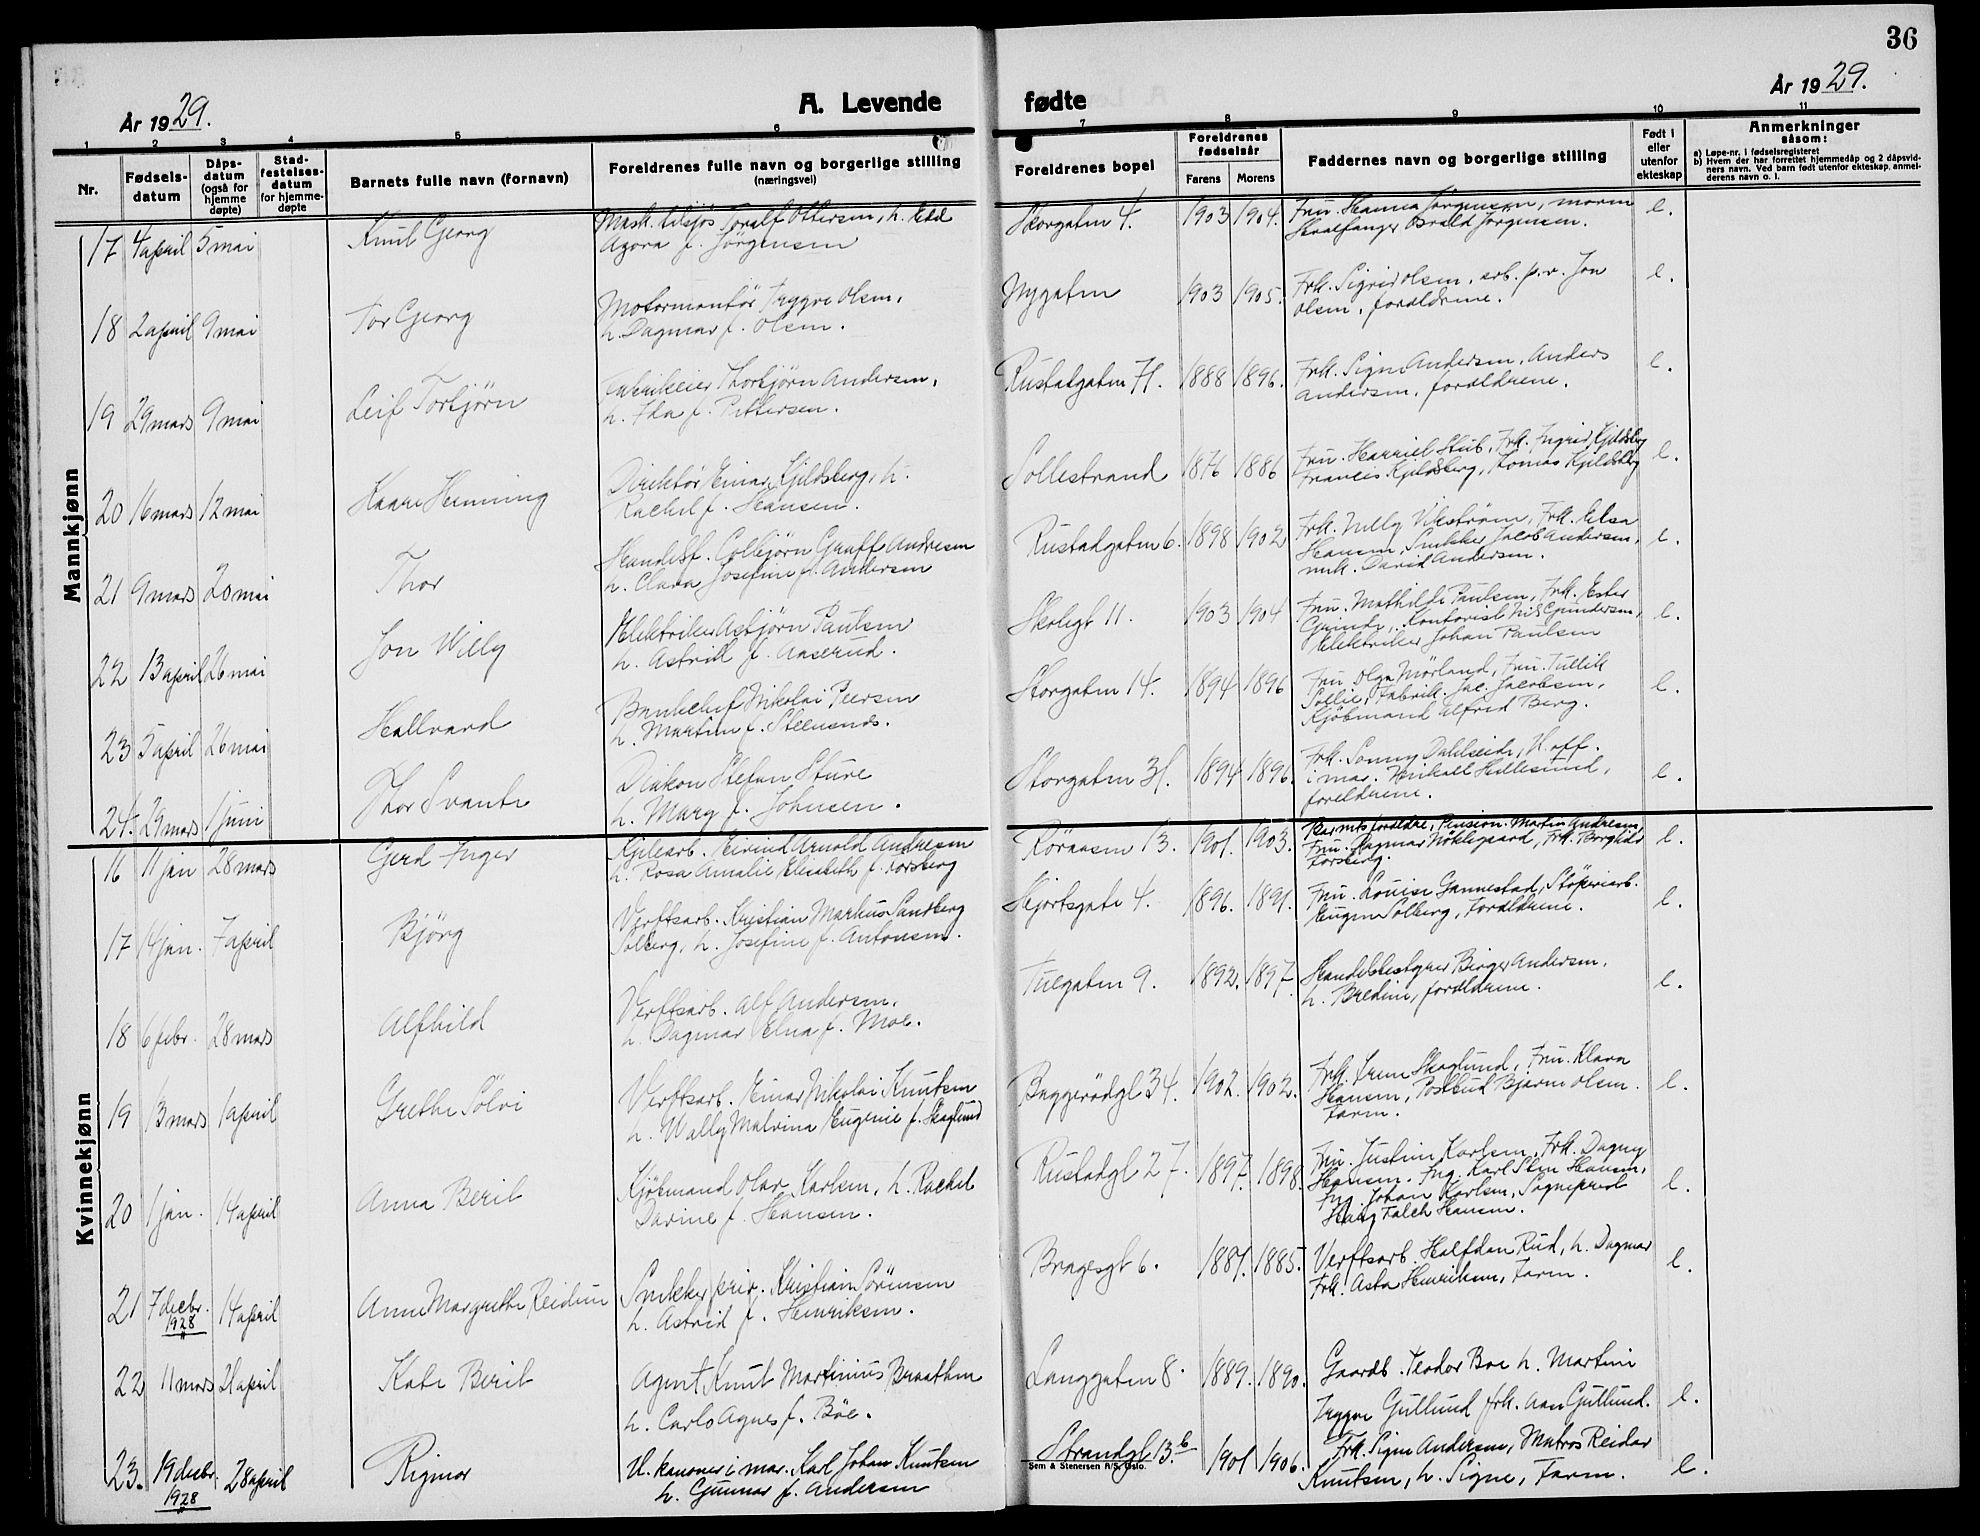 36
År 1929.
A. Levende
fødte
År 1929.
1 2 3 4 5 6 7 8 9 10 11
Nr.
Fødsels-
datum
Dåps-
datum
(også for
hjemme
døpte)
Stad-
festelses-
datum
for hjemme-
døpte
Barnets fulle navn (fornavn)
Foreldrenes fulle navn og borgerlige stilling
(næringsvei)
Foreldrenes bopel
Foreldrenes
fødselsår
Farens
Morens
Faddernes navn og borgerlige stilling
Født i
eller
utenfor
ekteskap
Anmerkninger
såsom:
a) Løpe-nr. i fødselsregisteret
b) Hvem der har forrettet hjemmedåp og 2 dåpsvid-
ners navn. Ved barn født utenfor ekteskap, anmel-
derens navn o. l.
Mannkjønn
17 4 april 5 mai Knut Georg
Toralf Ottersen, h.
Agora f. Jörgensen
Storgaten 4. 1903 1904.
Fru Hanna Jörgensen,
Hvalfanger Jörgensen.
e.
18 2 april 9 mai Tor Georg
Motormontör Trygve Olsen,
h. Dagmar f. Olsen.
Nygaten 1903 1905.
Frk. Sigrid Olsen, arb. Jon
Olsen, foreldrene.
e.
19 29 mars 9 mai Leif Torbjörn
Fabrikeier Thorbjörn Andersen,
h. Ida f. Pettersen.
Rustadgaten 71. 1888 1896.
Frk. Signe Andersen, Anders
Andersen, foreldrene.
e.
20 16 mars 12 mai Kaare Henning
Direktör Einar Kjeldsberg, h.
Rachel f. Hansen.
Sollistrand 1876 1886
Fru Harriet Stub, Frk. Ingrid Kjeldsberg
Francis Kjeldsberg, Tomas Kjeldsberg
e.
21 9 mars 20 mai Thor
Handelsf. Colbjörn Graff Andresen
h. Clara Josefine f. Andersen
Rustadgaten 6. 1898 1902
Frk. Nelly Vikström, Frk. Elsa
Hansen, Snekker Jacob Andersen,
David Andersen.
e.
22 13 april 26 mai Jon Willy
Elektriker Asbjörn Paulsen
h. Astrid f. Aaserud.
Skolegt 11. 1903 1904
Fru Mathilde Paulsen, Frk. Ester
Grinde, Kontorist Nils Gundersen,
Elektriker Johan Paulsen
e.
23 5 april 26 mai Hallvard
Bankchef Nikolai Peersen
h. Martine f. Steensnæs.
Storgaten 14. 1894 1896
Fru Olga Mörland, Fru
Sollie, Fabrik. Jac. Jacobsen,
Kjöbmand Alfred Berg.
e.
24. 29 mars 1 juni Thor Svante
Diakon Stefan Sture
h. Mary f. Johnsen.
Storgaten 31. 1894 1896.
Frk. Sonny Dahlseide, U. off.
i mar. Hellesund,
foreldrene.
e.
Kvinnekjønn
16 11 jan 28 mars Gerd Inger
Eivind Arnold Andresen
h. Rosa Amalie Elisabeth f. Forsberg
Röraasen 13. 1901. 1903.
Barnets foreldre, Pension. Martin Andresen,
Fru Dagmar Nöklegaard, Frk. Borghild
Forsberg.
e.
17 14 jan. 7 april Björg
Verftsarb. Kristian Markus Sandberg
Solberg, h. Josefine f. Antonsen.
Hjortsgate 4. 1896. 1891.
Fru Louise Gannestad, Stöperiarb.
Eugen Solberg, Foreldrene.
e.
18 6 febr. 28 mars Alfhild
Verftsarb. Alf Andersen,
h. Dagmar Elna f. Moe.
Tuegaten 9. 1892. 1897.
Handelsbestyrer Birger Andersen,
h. Bredine, foreldrene.
e.
19 13 mars 1 april Grethe Sölvi
Verftsarb. Einar Nikolai Knutsen
h. Wally Malvina Eugenie f. Skoglund
Baggerödgt 34. 1902. 1902.
Frk. Irene Skoglund, Fru Klara
Hansen, Postbud Bjarne Olsen.
Farm.
e.
20 1 jan. 14 april Anna Berit
Kjöbmand Olav Karlsen, h. Rachel
Davine f. Hansen.
Rustadgt 27. 1897. 1898.
Fru Justine Karlsen, Frk. Dagny
Hansen. Ing. Karl Sten Hansen,
Ing. Johan Karlsen, Sogneprest
Falch Hansen.
e.
21 7 decbr. 1928 14 april Anne Margrethe Reidun
Snekker priv. Kristian Sörensen
h. Astrid f. Henriksen.
Bragesgt 6. 1881. 1885.
Verftsarb. Halfdan Rud, h. Dagmar
Frk. Asta Henriksen, Farm.
e.
22 11 mars 21 april Kate Berit
Agent Knut Martinius Braathen
h. Carlo Agnes f. Böe.
Langgaten 8. 1889. 1890.
Gaardb. Teodor Boe h. Martine
Trygve Gullund frk. Gullund.
e.
23. 19 decbr. 1928 28 april Rigmor
U. kanoner i mar. Karl Johan Knutsen
h. Gunnar f. Andersen
Strandgt 13.b 1901 1906.
Frk. Signe Andersen, Matros Reidar
Knutsen, h. Signe, Farm.
e.
Sem & Stenersen A/S, Oslo.